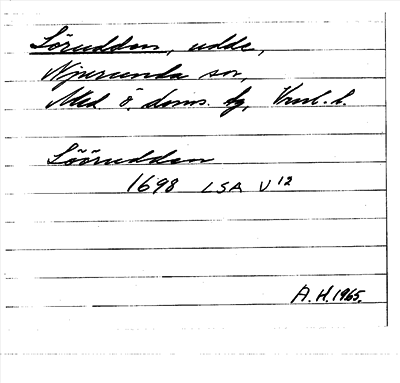 Lörudden, udde,
Njurunda sn,
Med. ö. doms. bg, Vnrl. l.
Löörudden
1698 LSA V 12
A.H. 1965.